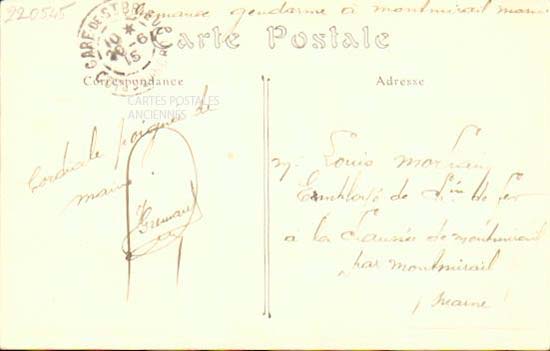 220545
gendarme à montmirail marne
GARE DE ST BRIEUC
20-6
15
Carte Postale
Correspondance
Adresse
CARTES POSTALES
ANCIENNES
Cordiale poignée de
main
M. Louis
Employé de Cin de fer
à la Chaussée de montmirail
par montmirail
(Marne)